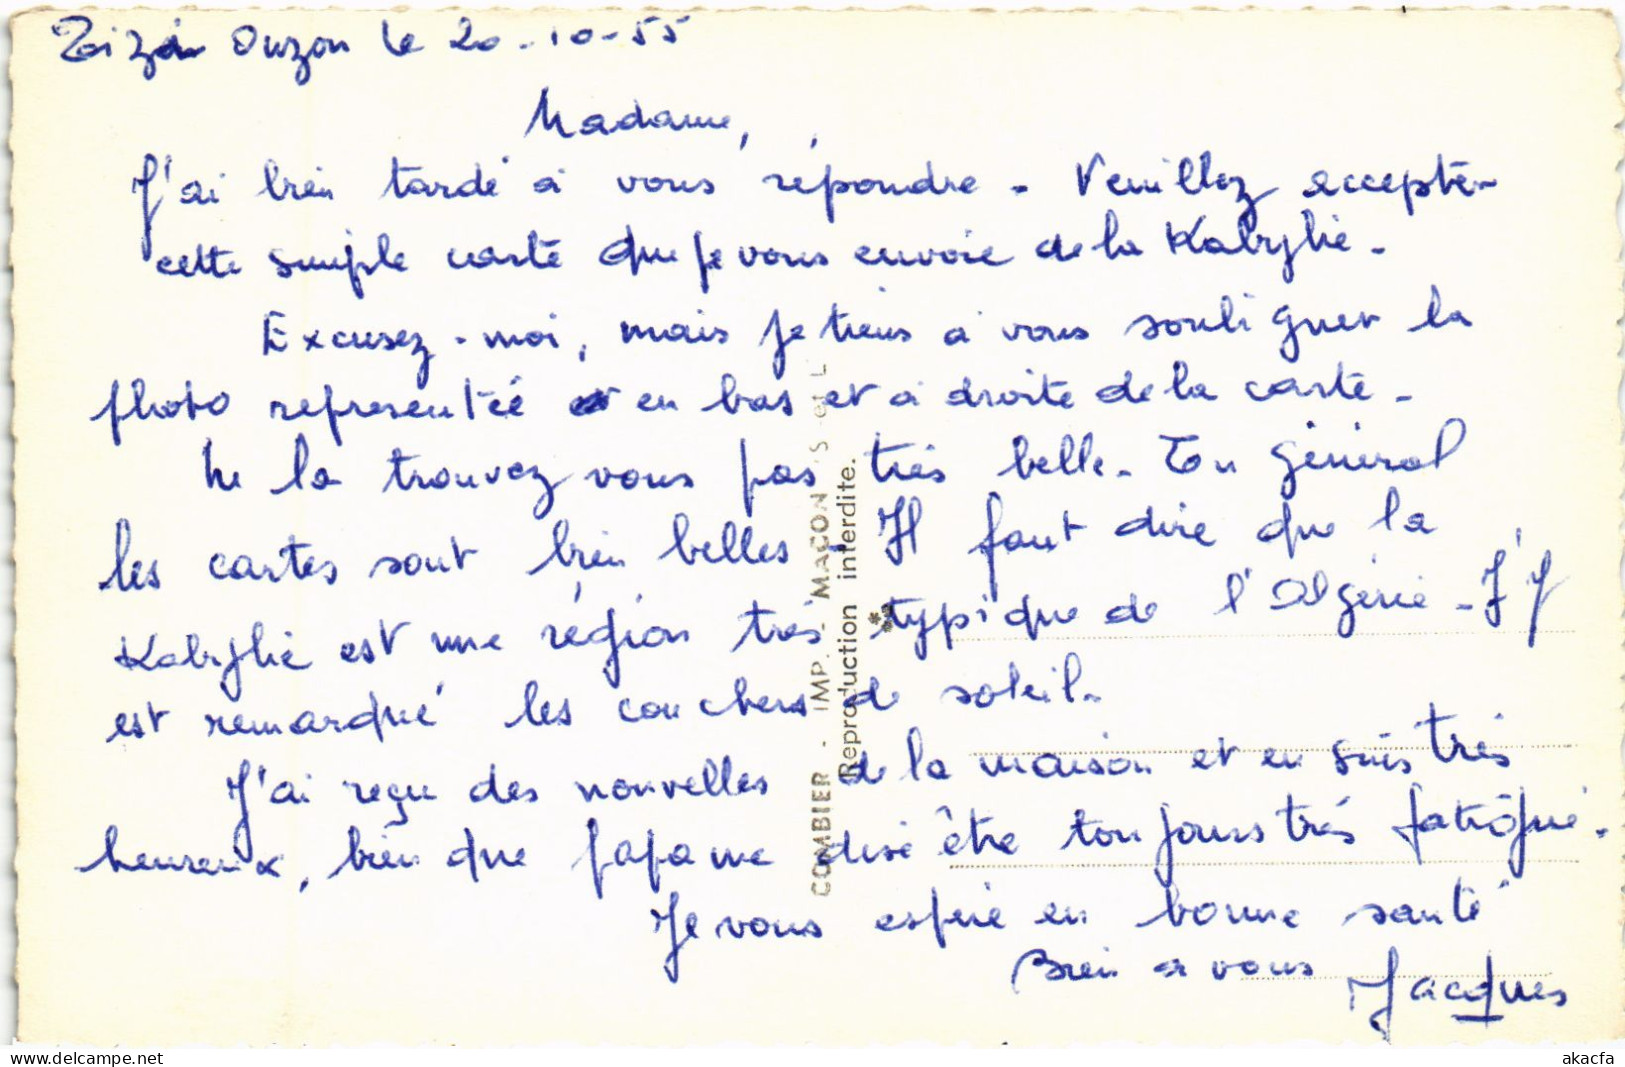 Tizi Ouzou le 20-10-55
Madame,
J'ai bien tardé à vous répondre - Veuillez accepter
cette simple carte que je vous envoie de la Kabylie -
Excusez-moi, mais je tiens à vous souligner la
photo representée en bas et à droite de la carte -
Ne la trouvez vous pas très belle - En général
les cartes sont bien belles. Il faut dire que la
Kabylie est une région très typique de l'Algérie - J'y
est remarqué les couchers de soleil -
J'ai reçu des nouvelles de la maison et en suis très
heureux, bien que papa me dise être toujours très fatigué.
Je vous espère en bonne santé
Bien à vous
Jacques
COMBIER - IMP. - MACON
Reproduction interdite.
delcampe.net
akacfa